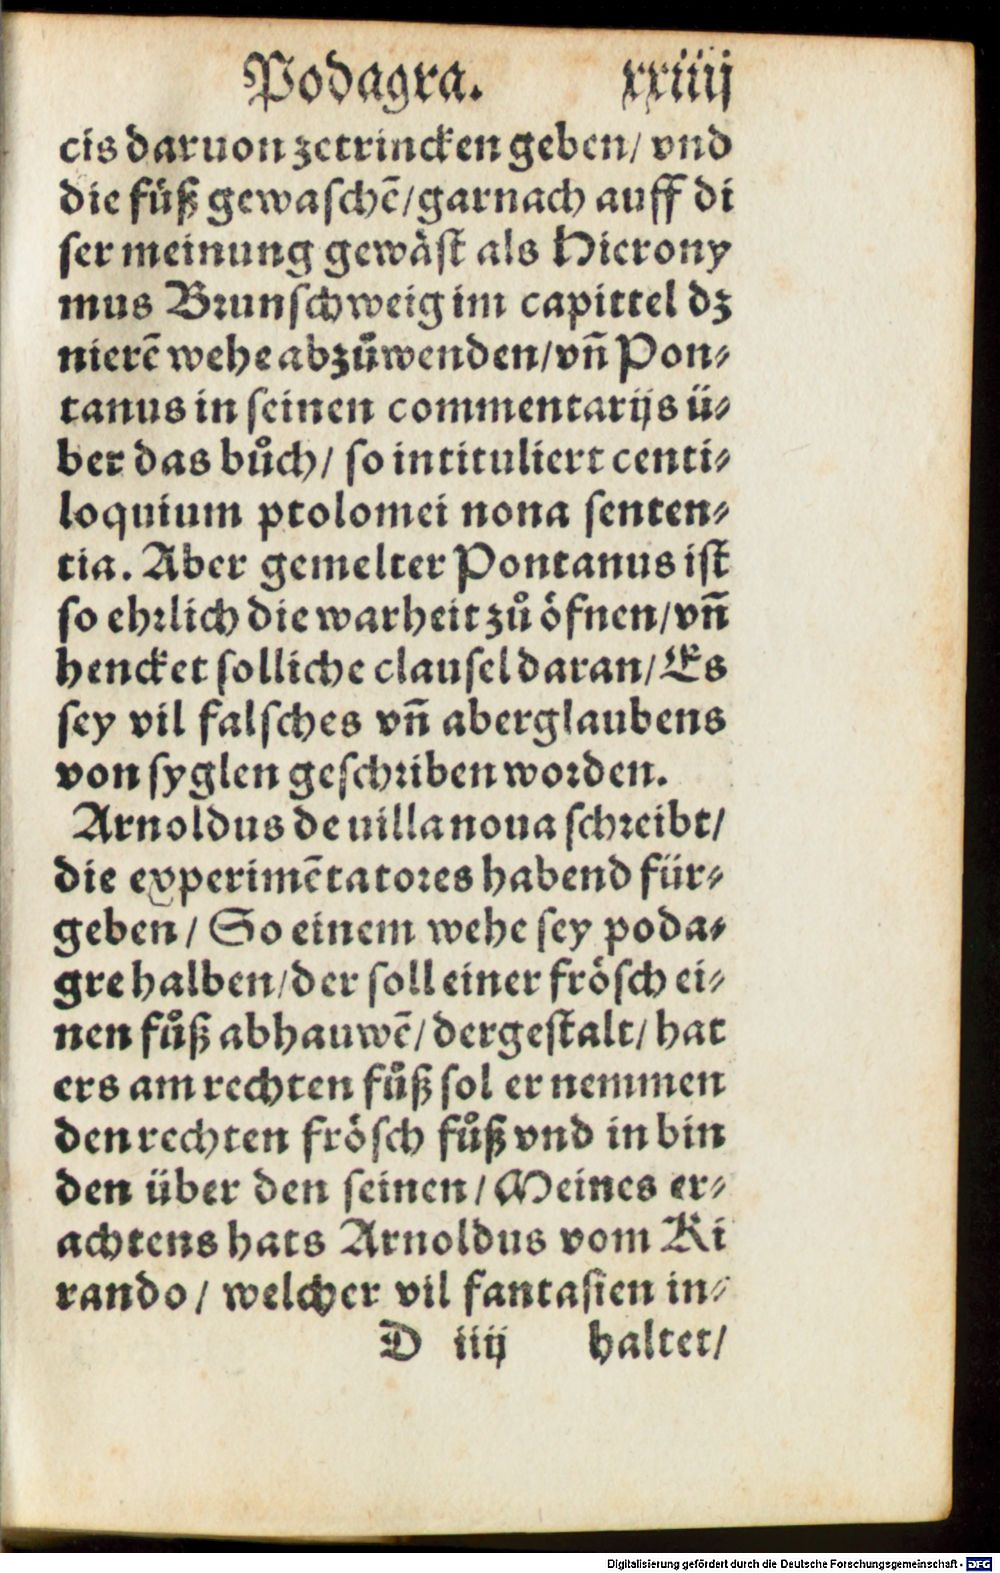 Podagra. xxiiij
cis daruon zetrincken geben/ vnd
die füß gewaschē/garnach auff di
ser meinung gewäst als Hierony
mus Brunschweig im capittel dz
nierē wehe abzůwenden/vn̄ Pon⸗
tanus in seinen commentarijs ü⸗
ber das bůch/ so intituliert centi⸗
loquium ptolomei nona senten⸗
tia. Aber gemelter Pontanus ist
so ehrlich die warheit zů öfnen/vn̄
hencket solliche clausel daran/ Es
sey vil falsches vn̄ aberglaubens
von syglen geschriben worden.
Arnoldus de uilla noua schreibt/
die experimētatores habend für⸗
geben/ So einem wehe sey poda⸗
gre halben/der soll einer frösch ei⸗
nen fůß abhauwē/ dergestalt/ hat
ers am rechten fůß sol er nemmen
den rechten frösch fůß vnd in bin
den über den seinen/ Meines er⸗
achtens hats Arnoldus vom Ki
rando/ welcher vil fantasien in⸗
D iiij haltet/
Digitalisierung gefördert durch die Deutsche Forschungsgemeinschaft - DFG